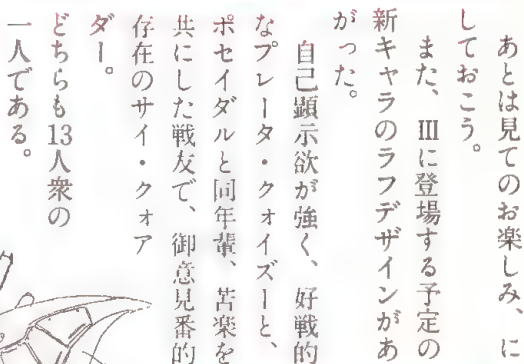 あとは見てのお楽しみ、に
しておこう。
また、Ⅲに登場する予定の
新キャラのラフデザインがあ
がった。
自己顕示欲が強く、好戦的
なプレータ・クォイズーと、
ポセイダルと同年輩、苦楽を
共にした戦友で、御意見番的
存在のサイ・クォア
ダー。
どちらも13人衆の
一人である。